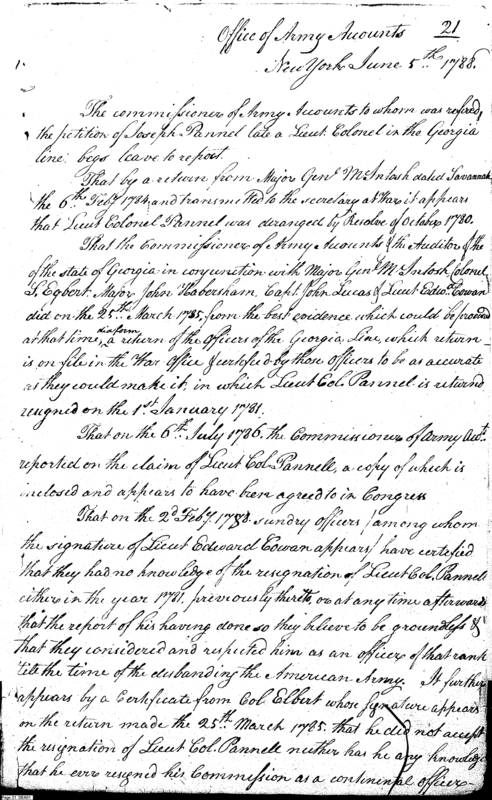 Office of Army Accounts 21
New York June 5th. 1788.
The commissioner of Army Accounts to whom was refered,
the petition of Joseph Pannel late a Lieut. Colonel in the Georgia
line; begs leave to report.
That by a return from Major Genl. McIntosh dated Savannah
the 6th. Feby. 1784, and transmitted to the secretary at War it appears
that Lieut Colonel Pannel was deranged by Resolve of October 1780.
That the Commissioner of Army Accounts & the Auditor of the
of the state of Georgia in conjunction with Major Genl. McIntosh Colonel
S. Egbert. Major John Habersham, Capt. John Lucas & Lieut. Edwd. Cowan
did on the 25th. March 1785, from the best evidence which could be procured
at that time, form a return of the Officers of the Georgia Line, which return
is on file in the War Office & certified by those officers to be as accurate
as they could make it, in which Lieut Col. Pannel is returned
resigned on the 1st. January 1781.
That on the 6th. July 1786. the Commissioner of Army Acts.
reported on the claim of Lieut Col. Pannell, a copy of which is
inclosed and appears to have been agreed to in Congress
That on the 2d. Feby. 1788. sundry officers (among whom
the signature of Lieut Edward Cowan appears) have certified
that they had no knowledge of the resignation of Lieut Col. Pannell
either in the year 1781, previously thereto, or at any time afterwards
that the report of his having done so they believe to be groundless &
that they considered and respected him as an officer of that rank
'till the time of the disbanding the American Army. It further
appears by a Certificate from Col Elbert whose signature appears
on the return made the 25th. March 1785. that he did not accept
the resignation of Lieut Col. Pannell neither has he any knowledge
that he ever resigned his Commission as a continental officer